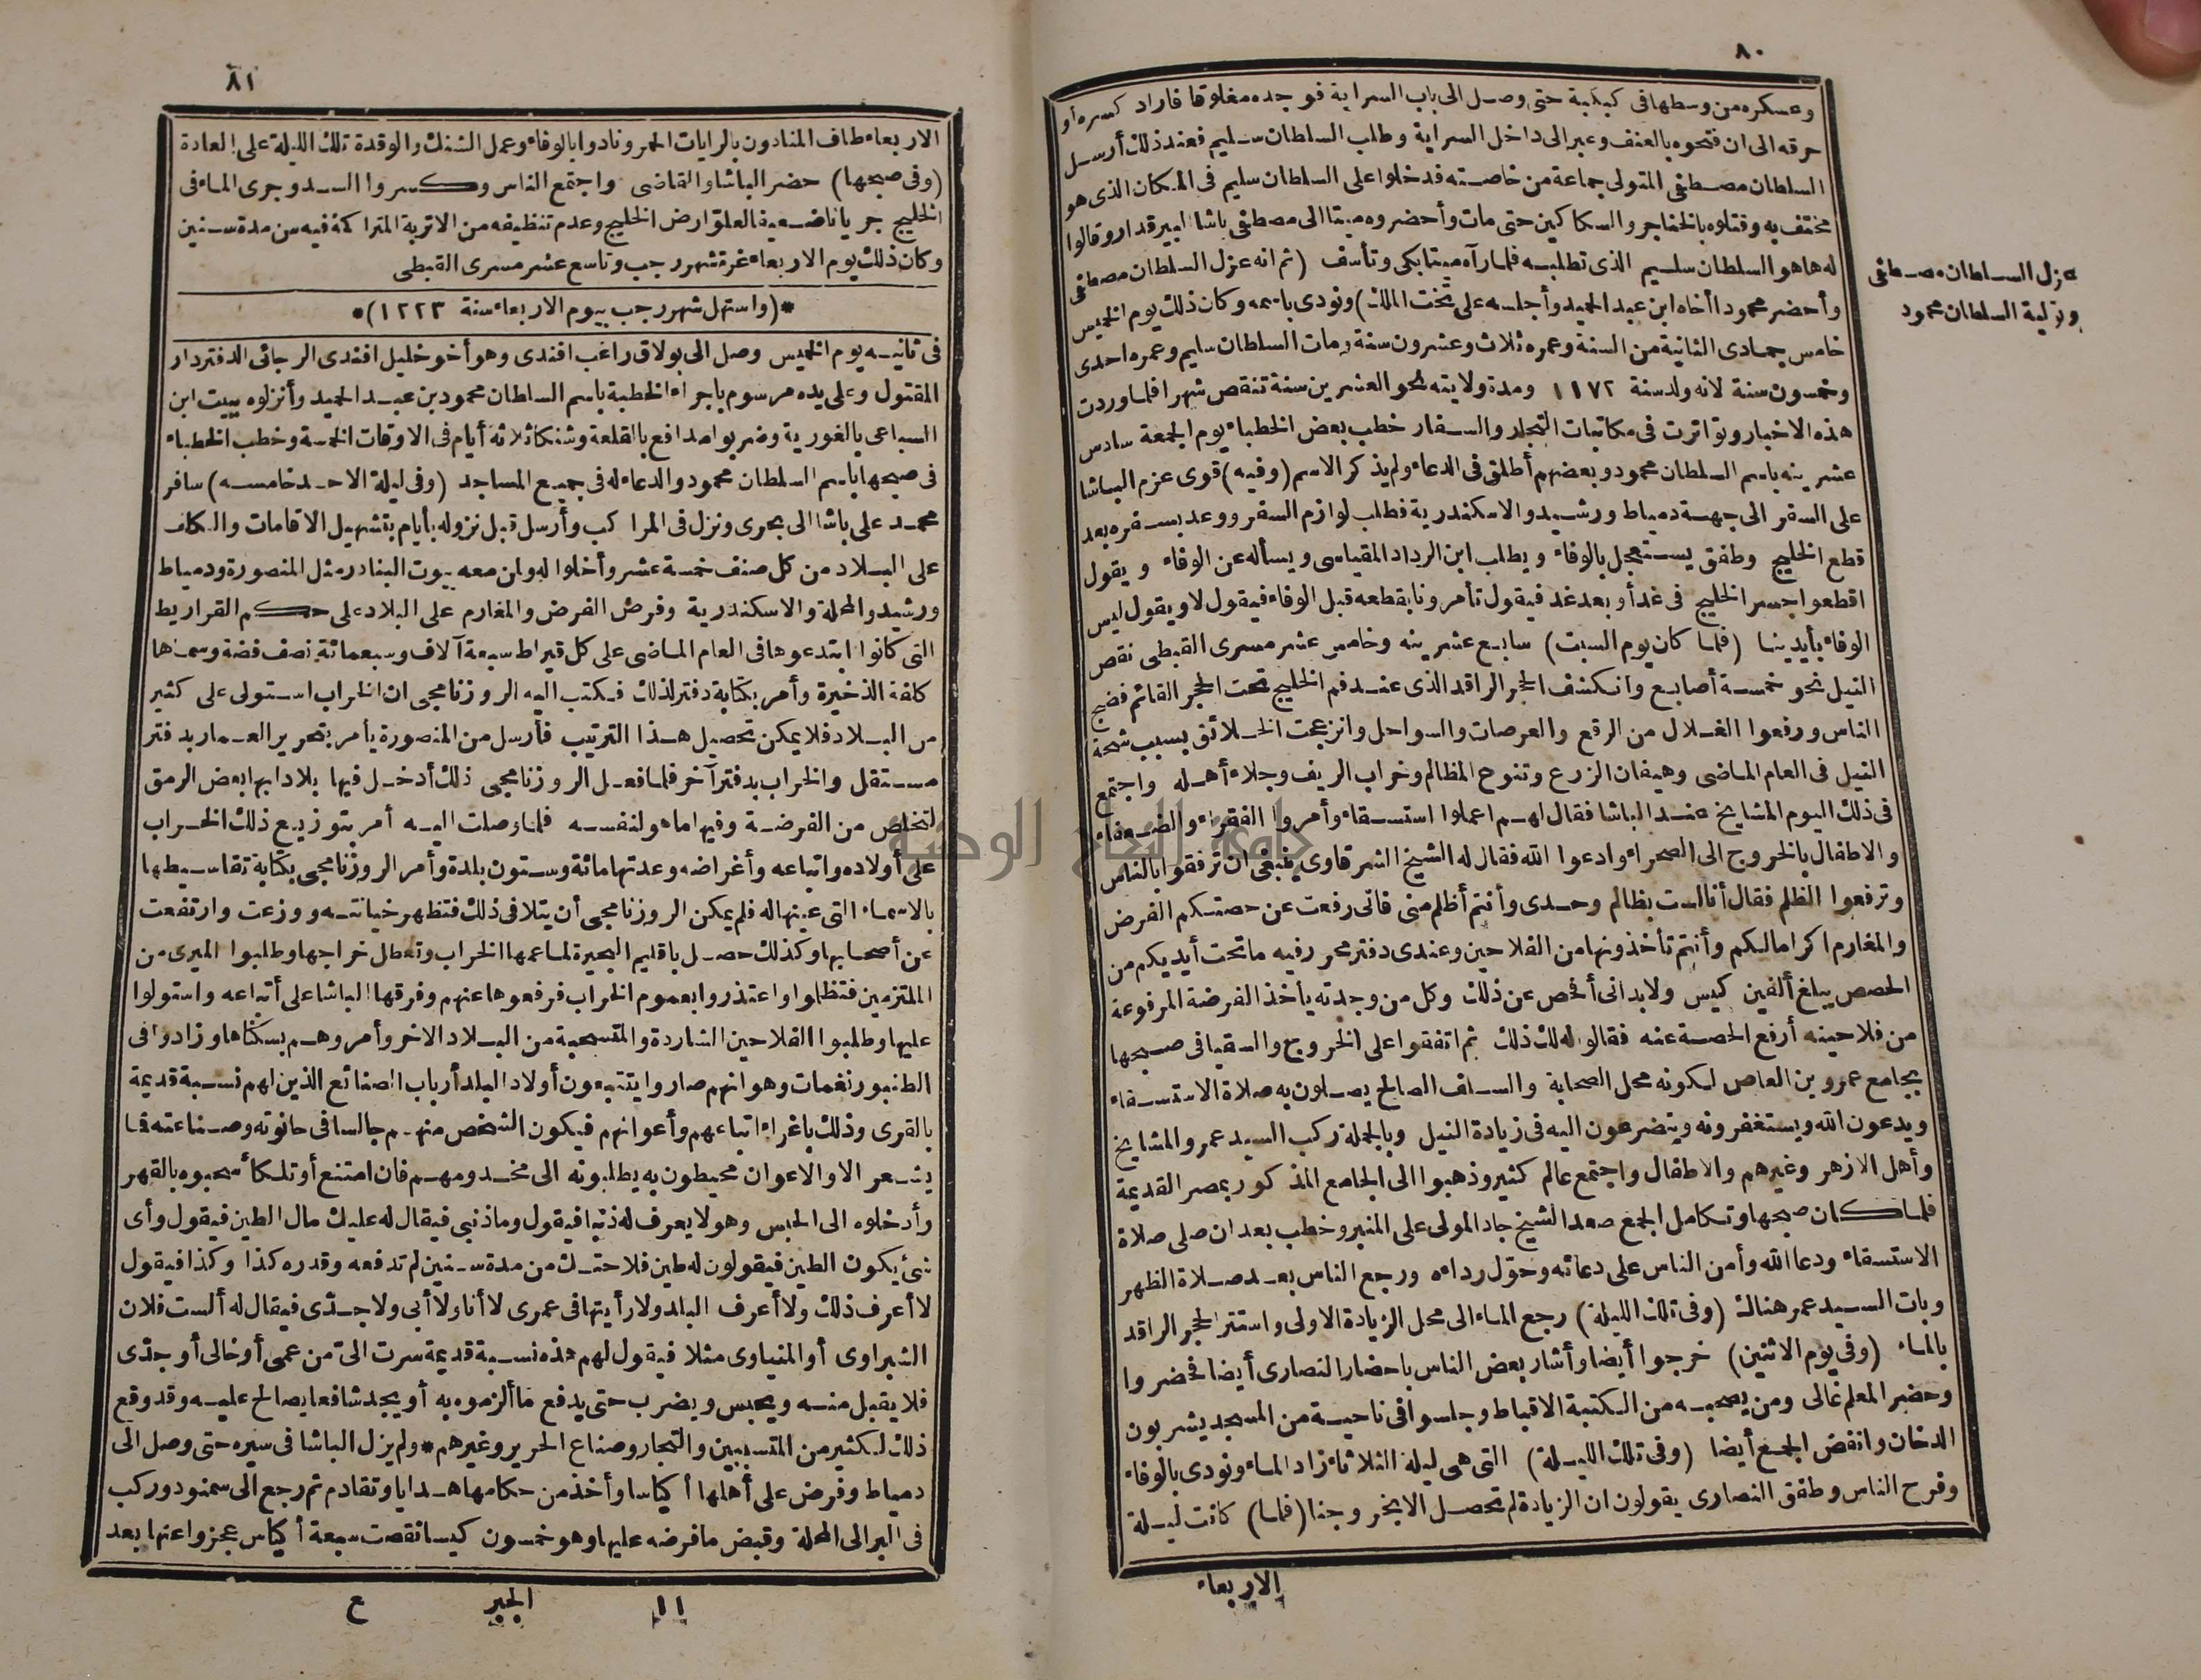 ٨٠
وعسكره من وسطها فى كبكبة حتى وصل الى باب السراية فوجده مغلوقا فاراد كسره أو
حرقه الى ان فتحوه بالعنف وعبر الى داخل السراية وطلب السلطان سليم فعند ذلك أرسل
السلطان مصطفى المتولى جماعة من خاصته فدخلوا على السلطان سليم فى المكان الذى هو
مختف به وقتلوه بالخناجر والسكاكين حتى مات وأحضروه ميتا الى مصطفى باشا البيرقدار وقالوا
له ها هو السلطان سليم الذى تطلبه فلما رآه ميتا بكى وتأسف (ثم انه عزل السلطان مصطفى
وأحضر محمودا أخاه ابن عبد الحميد وأجلسه على تخت الملك) ونودى باسمه وكان ذلك يوم الخميس
خامس جمادى الثانية من السنة وعمره ثلاث وعشرون سنة ومات السلطان سليم وعمره احدى
وخمسون سنة لانه ولد سنة ١١٧٢ ومدة ولايته نحو العشرين سنة تنقص شهرا فلما وردت
هذه الاخبار وتواترت فى مكاتبات التجار والسفار خطب بعض الخطباء يوم الجمعة سادس
عشرينه باسم السلطان محمود وبعضهم أطلق فى الدعاء ولم يذكر الاسم (وفيه) قوى عزم الباشا
على السفر الى جهة دمياط ورشيد والاسكندرية فطلب لوازم السفر ووعد بسفره بعد
قطع الخليج وطفق يستعجل بالوفاء ويطلب ابن الرداد المقياسى ويسأله عن الوفاء ويقول
اقطعوا جسر الخليج فى غد أو بعد غد فيقول تأمرونا بقطعه قبل الوفاء فيقول لا ويقول ليس
الوفاء بأيدينا (فلما كان يوم السبت) سابع عشرينه وخامس عشر مسرى القبطى نقص
النيل نحو خمسة أصابع وانكشف الحجر الراقد الذى عند فم الخليج تحت الحجر القائم فضج
الناس ورفعوا الغلال من الرقع والعرصات والسواحل وانزعجت الخلائق بسبب شحة
النيل فى العام الماضى وهيفان الزرع وتنوع المظالم وخراب الريف وجلاء أهله واجتمع
فى ذلك اليوم المشايخ عند الباشا فقال لهم اعملوا استسقاء وأمروا الفقراء والضعفاء
والاطفال بالخروج الى الصحراء وادعوا الله فقال له الشيخ الشرقاوى ينبغى ان ترفقوا بالناس
وترفعوا الظلم فقال أنا لست بظالم وحدى وأنتم أظلم منى فانى رفعت عن حصتكم الفرض
والمغارم اكراما لكم وأنتم تأخذونها من الفلاحين وعندى دفتر محرر فيه ما تحت أيديكم من
الحصص يبلغ ألفين كيس ولا بد انى أفحص عن ذلك وكل من وجدته يأخذ الفرضة المرفوعة
من فلاحينه أرفع الحصة عنه فقالوا له لك ذلك ثم اتفقوا على الخروج والسقيا فى صبحها
بجامع عمرو بن العاص لكونه محل الصحابة والسلف الصالح يصلون به صلاة الاستسقاء
ويدعون الله ويستغفرونه ويتضرعون اليه فى زيادة النيل وبالجملة ركب السيد عمر والمشايخ
وأهل الازهر وغيرهم والاطفال واجتمع عالم كثير وذهبوا الى الجامع المذكور بمصر القديمة
فلما كان صبحها وتكامل الجمع صعد الشيخ جاد المولى على المنبر وخطب بعد ان صلى صلاة
الاستسقاء ودعا الله وأمن الناس على دعائه وحوّل رداءه ورجع الناس بعد صلاة الظهر
وبات السيد عمر هناك (وفى تلك الليلة) رجع الماء الى محل الزيادة الاولى واستتر الحجر الراقد
بالماء (وفى يوم الاثنين) خرجوا أيضا وأشار بعض الناس باحضار النصارى أيضا فحضروا
وحضر المعلم غالى ومن يصحبه من الكتبة الاقباط وجلسوا فى ناحية من المسجد يشربون
الدخان وانفض الجمع أيضا (وفى تلك الليلة) التى هى ليلة الثلاثاء زاد الماء ونودى بالوفاء
وفرح الناس وطفق النصارى يقولون ان الزيادة لم تحصل الا بخروجنا (فلما) كانت ليلة
الاربعاء
عزل السلطان مصطفى
وتولية السلطان محمود
٨١
الاربعاء طاف المنادون بالرايات الحمر ونادوا بالوفاء وعمل الشنك والوقدة تلك الليلة على العادة
(وفى صبحها) حضر الباشا والقاضى واجتمع الناس وكسروا السد وجرى الماء فى
الخليج جريانا ضعيفا لعلوّ ارض الخليج وعدم تنظيفه من الاتربة المتراكمة فيه من مدة سنين
وكان ذلك يوم الاربعاء غرة شهر رجب وتاسع عشر مسرى القبطى
*(واستهل شهر رجب بيوم الاربعاء سنة ١٢٢٣)*
فى ثانيه يوم الخميس وصل الى بولاق راغب افندى وهو أخو خليل افندى الرجائى الدفتردار
المقتول وعلى يده مرسوم باجراء الخطبة باسم السلطان محمود بن عبد الحميد وأنزلوه ببيت ابن
السباعى بالغورية وضربوا مدافع بالقلعة وشنكا ثلاثة أيام فى الاوقات الخمسة وخطب الخطباء
فى صبحها باسم السلطان محمود والدعاء له فى جميع المساجد (وفى ليلة الاحد خامسه) سافر
محمد على باشا الى بحرى ونزل فى المراكب وأرسل قبل نزوله بأيام بتشهيل الاقامات والكلف
على البلاد من كل صنف خمسة عشر وأخلوا له ولمن معه بيوت البنادر مثل المنصورة ودمياط
ورشيد والمحلة والاسكندرية وفرض الفرض والمغارم على البلاد على حكم القراريط
التى كانوا ابتدعوها فى العام الماضى على كل قيراط سبعة آلاف وسبعمائة نصف فضة وسمّاها
كلفة الذخيرة وأمر بكتابة دفتر لذلك فكتب اليه الروزنامجى ان الخراب استولى على كثير
من البلاد فلا يمكن تحصيل هذا الترتيب فأرسل من المنصورة يأمر بتحرير العمار بدفتر
مستقل والخراب بدفتر آخر فلما فعل الروزنامجى ذلك أدخل فيها بلادا بها بعض الرمق
لتخلص من الفرضة وفيها ما هو لنفسه فلما وصلت اليه أمر بتوزيع ذلك الخراب
على أولاده واتباعه وأغراضه وعدتها مائة وستون بلدة وأمر الروزنامجى بكتابة تقاسيطها
بالاسماء التى عينها له فلم يمكن الروزنامجى أن يتلافى ذلك فتظهر خيانته ووزعت وارتفعت
عن أصحابها وكذلك حصل باقليم البحيرة لما عمها الخراب وتعطل خراجها وطلبوا الميرى من
الملتزمين فتظلموا واعتذروا بعموم الخراب فرفعوها عنهم وفرقها الباشا على أتباعه واستولوا
عليها وطلبوا الفلاحين الشاردة والمتسحبة من البلاد الاخر وأمروهم بسكناها وزادوا فى
الطنبور نغمات وهو انهم صاروا يتتبعون أولاد البلد أرباب الصنائع الذين لهم نسبة قديمة
بالقرى وذلك باغراء اتباعهم وأعوانهم فيكون الشخص منهم جالسا فى حانوته وصناعته فما
يشعر الا والاعوان محيطون به يطلبونه الى مخدومهم فان امتنع أو تلكأ سحبوه بالقهر
وأدخلوه الى الحبس وهو لا يعرف له ذنبا فيقول وما ذنبى فيقال له عليك مال الطين فيقول وأى
شئ يكون الطين فيقولون له طين فلاحتك من مدة سنين لم تدفعه وقدره كذا وكذا فيقول
لا أعرف ذلك ولا أعرف البلد ولا رأيتها فى عمرى لا أنا ولا أبى ولا جدّى فيقال له ألست فلان
الشبراوى أو المنياوى مثلا فيقول لهم هذه نسبة قديمة سرت الىّ من عمى أو خالى أو جدّى
فلا يقبل منه ويحبس ويضرب حتى يدفع ما ألزموه به أو يجد شافعا يصالح عليه وقد وقع
ذلك لكثير من المتسببين والتجار وصناع الحرير وغيرهم * ولم يزل الباشا فى سيره حتى وصل الى
دمياط وفرض على أهلها أكياسا وأخذ من حكامها هدايا وتقادم ثم رجع الى سمنود وركب
فى البر الى المحلة وقبض ما فرضه عليها وهو خمسون كيسا نقصت سبعة أكياس عجزوا عنها بعد
١١ الجبر ع
جامعة النجاح الوطنية